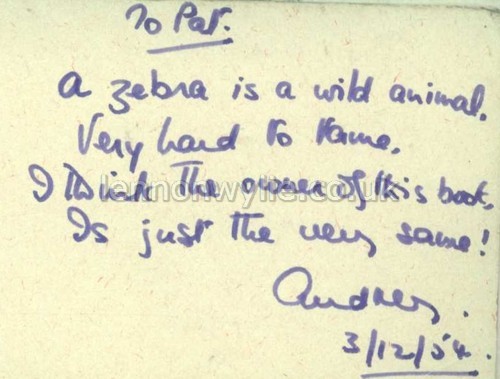 To Pat.
A zebra is a wild animal.
Very hard to tame.
I think the owner of this book,
Is just the very same!
Audrey.
3/12/54.
lennonwylie.co.uk